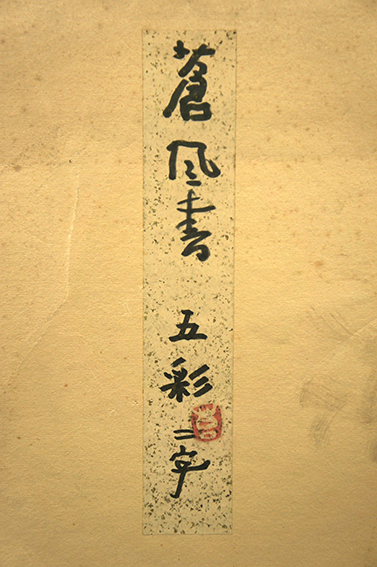 蒼風書 五彩二字